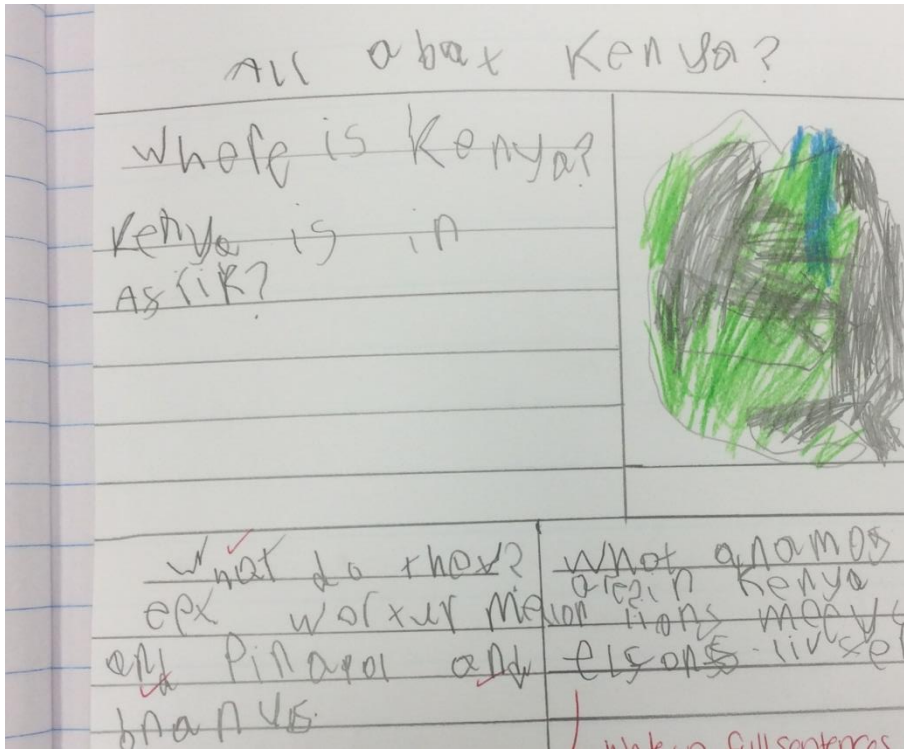 All abax Kenya?
Where is Kenya?
Kenya is in
Asfik?
What do they?
eex worxur Melon
and Pinapol and
bnanus.
What anamos
are in Kenya
lions meey
elsons. liv
full sentences